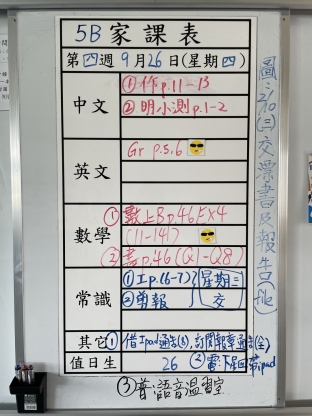 5B 家課表
第四週 9月26日(星期四)
中文
①作p.11-13
②明小測p.1-2
英文
Gr p.5,6
數學
①數上B p.46 E×4
(11-14)
②書p.46 (Q1-Q8)
常識
①Ip.(6-7)
②剪報
星期三
交
其它
①借Ipad通告(5), 訂閱報章通告(全)
值日生
26
②電:下星四帶ipad
③普:語音溫習室
圖:2/10(三)交漂書及報告(file)